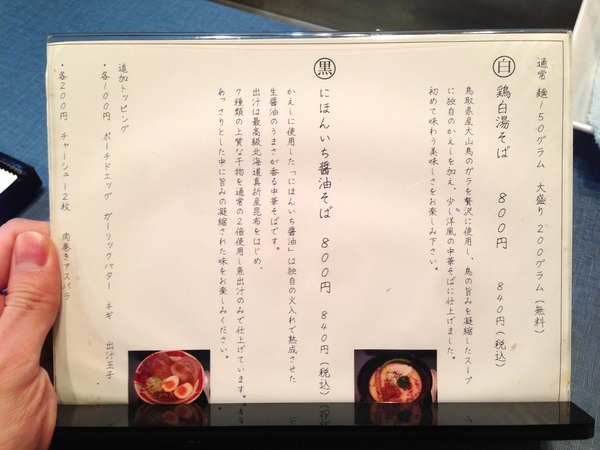 通常 麺150グラム 大盛り200グラム(無料)
白 鶏白湯そば 800円 840円(税込)
鳥取県産大山鳥のガラを贅沢に使用し、鳥の旨みを凝縮したスープ
に独自のかえしを加え、少し洋風の中華そばに仕上げました。
初めて味わう美味しさをお楽しみ下さい。
黒 にほんいち醤油そば 800円 840円(税込)
かえしに使用した「にほんいち醤油」は独自の火入れで熟成させた
生醤油のうまさが香る中華そばです。
出汁は最高級北海道真折産昆布をはじめ、
7種類の上質な干物を通常の2倍使用し魚出汁のみで仕上げています。
あっさりとした中に旨みの凝縮された味をお楽しみください。
追加トッピング
・各100円 ポーチドエッグ ガーリックバター ネギ 出汁玉子
・各200円 チャーシュー2枚 肉巻きアスパラ